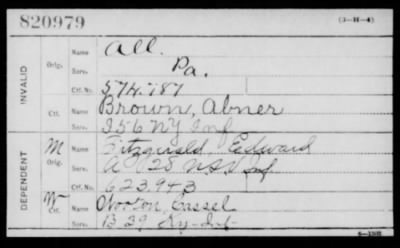 820979
(3-H-4)
INVALID
Orig.
Name All.
Serv. Pa.
Ctf. No. 574.787
Ctf.
Name Brown, Abner
Serv. I 56 NY Inf
DEPENDENT
M Orig.
Name Fitzgerald, Edward
Serv. A 28 Inf
Ctf. No. 623.943
W Ctf.
Name Wooton, Cassel
Serv. B 29 Ky Inf